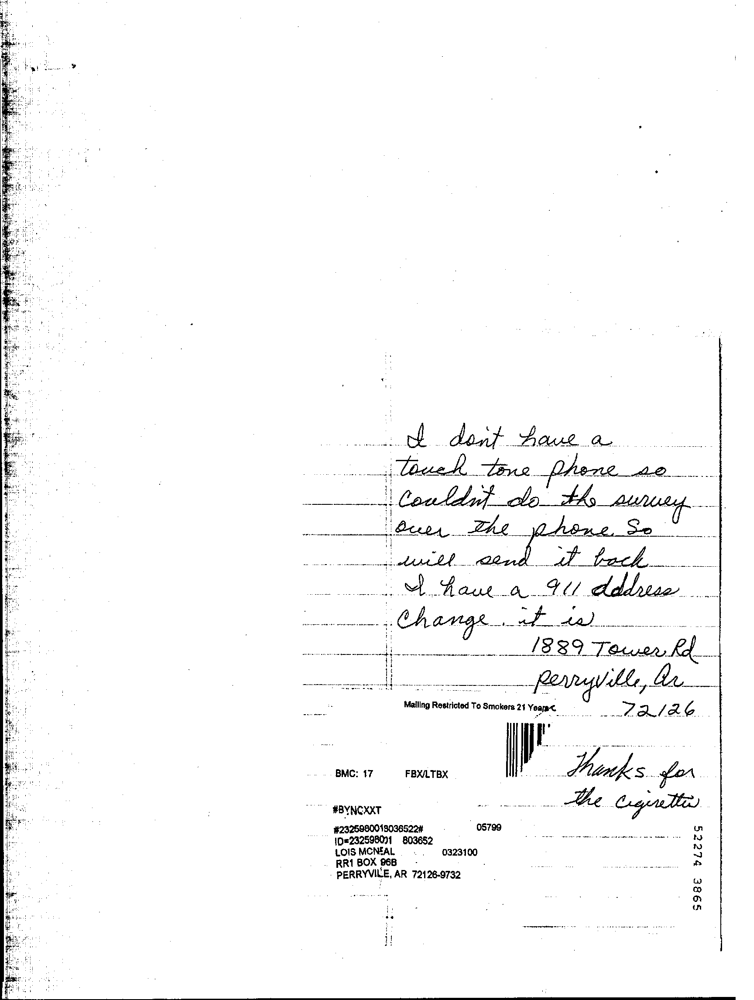 I don't have a
touch tone phone so
Couldn't do the survey
over the phone. So
will send it back
I have a 911 dddress
Change. it is
1889 Tower Rd
perryville, Ar
72126
Mailing Restricted To Smokers 21 Years
Thanks for
the Cigirettes
BMC: 17 FBX/LTBX
#BYNCXXT
#2325980018036522# 05799
ID=232598001 803652
LOIS MCNEAL 0323100
RR1 BOX 96B
PERRYVILLE, AR 72126-9732
52274 3865